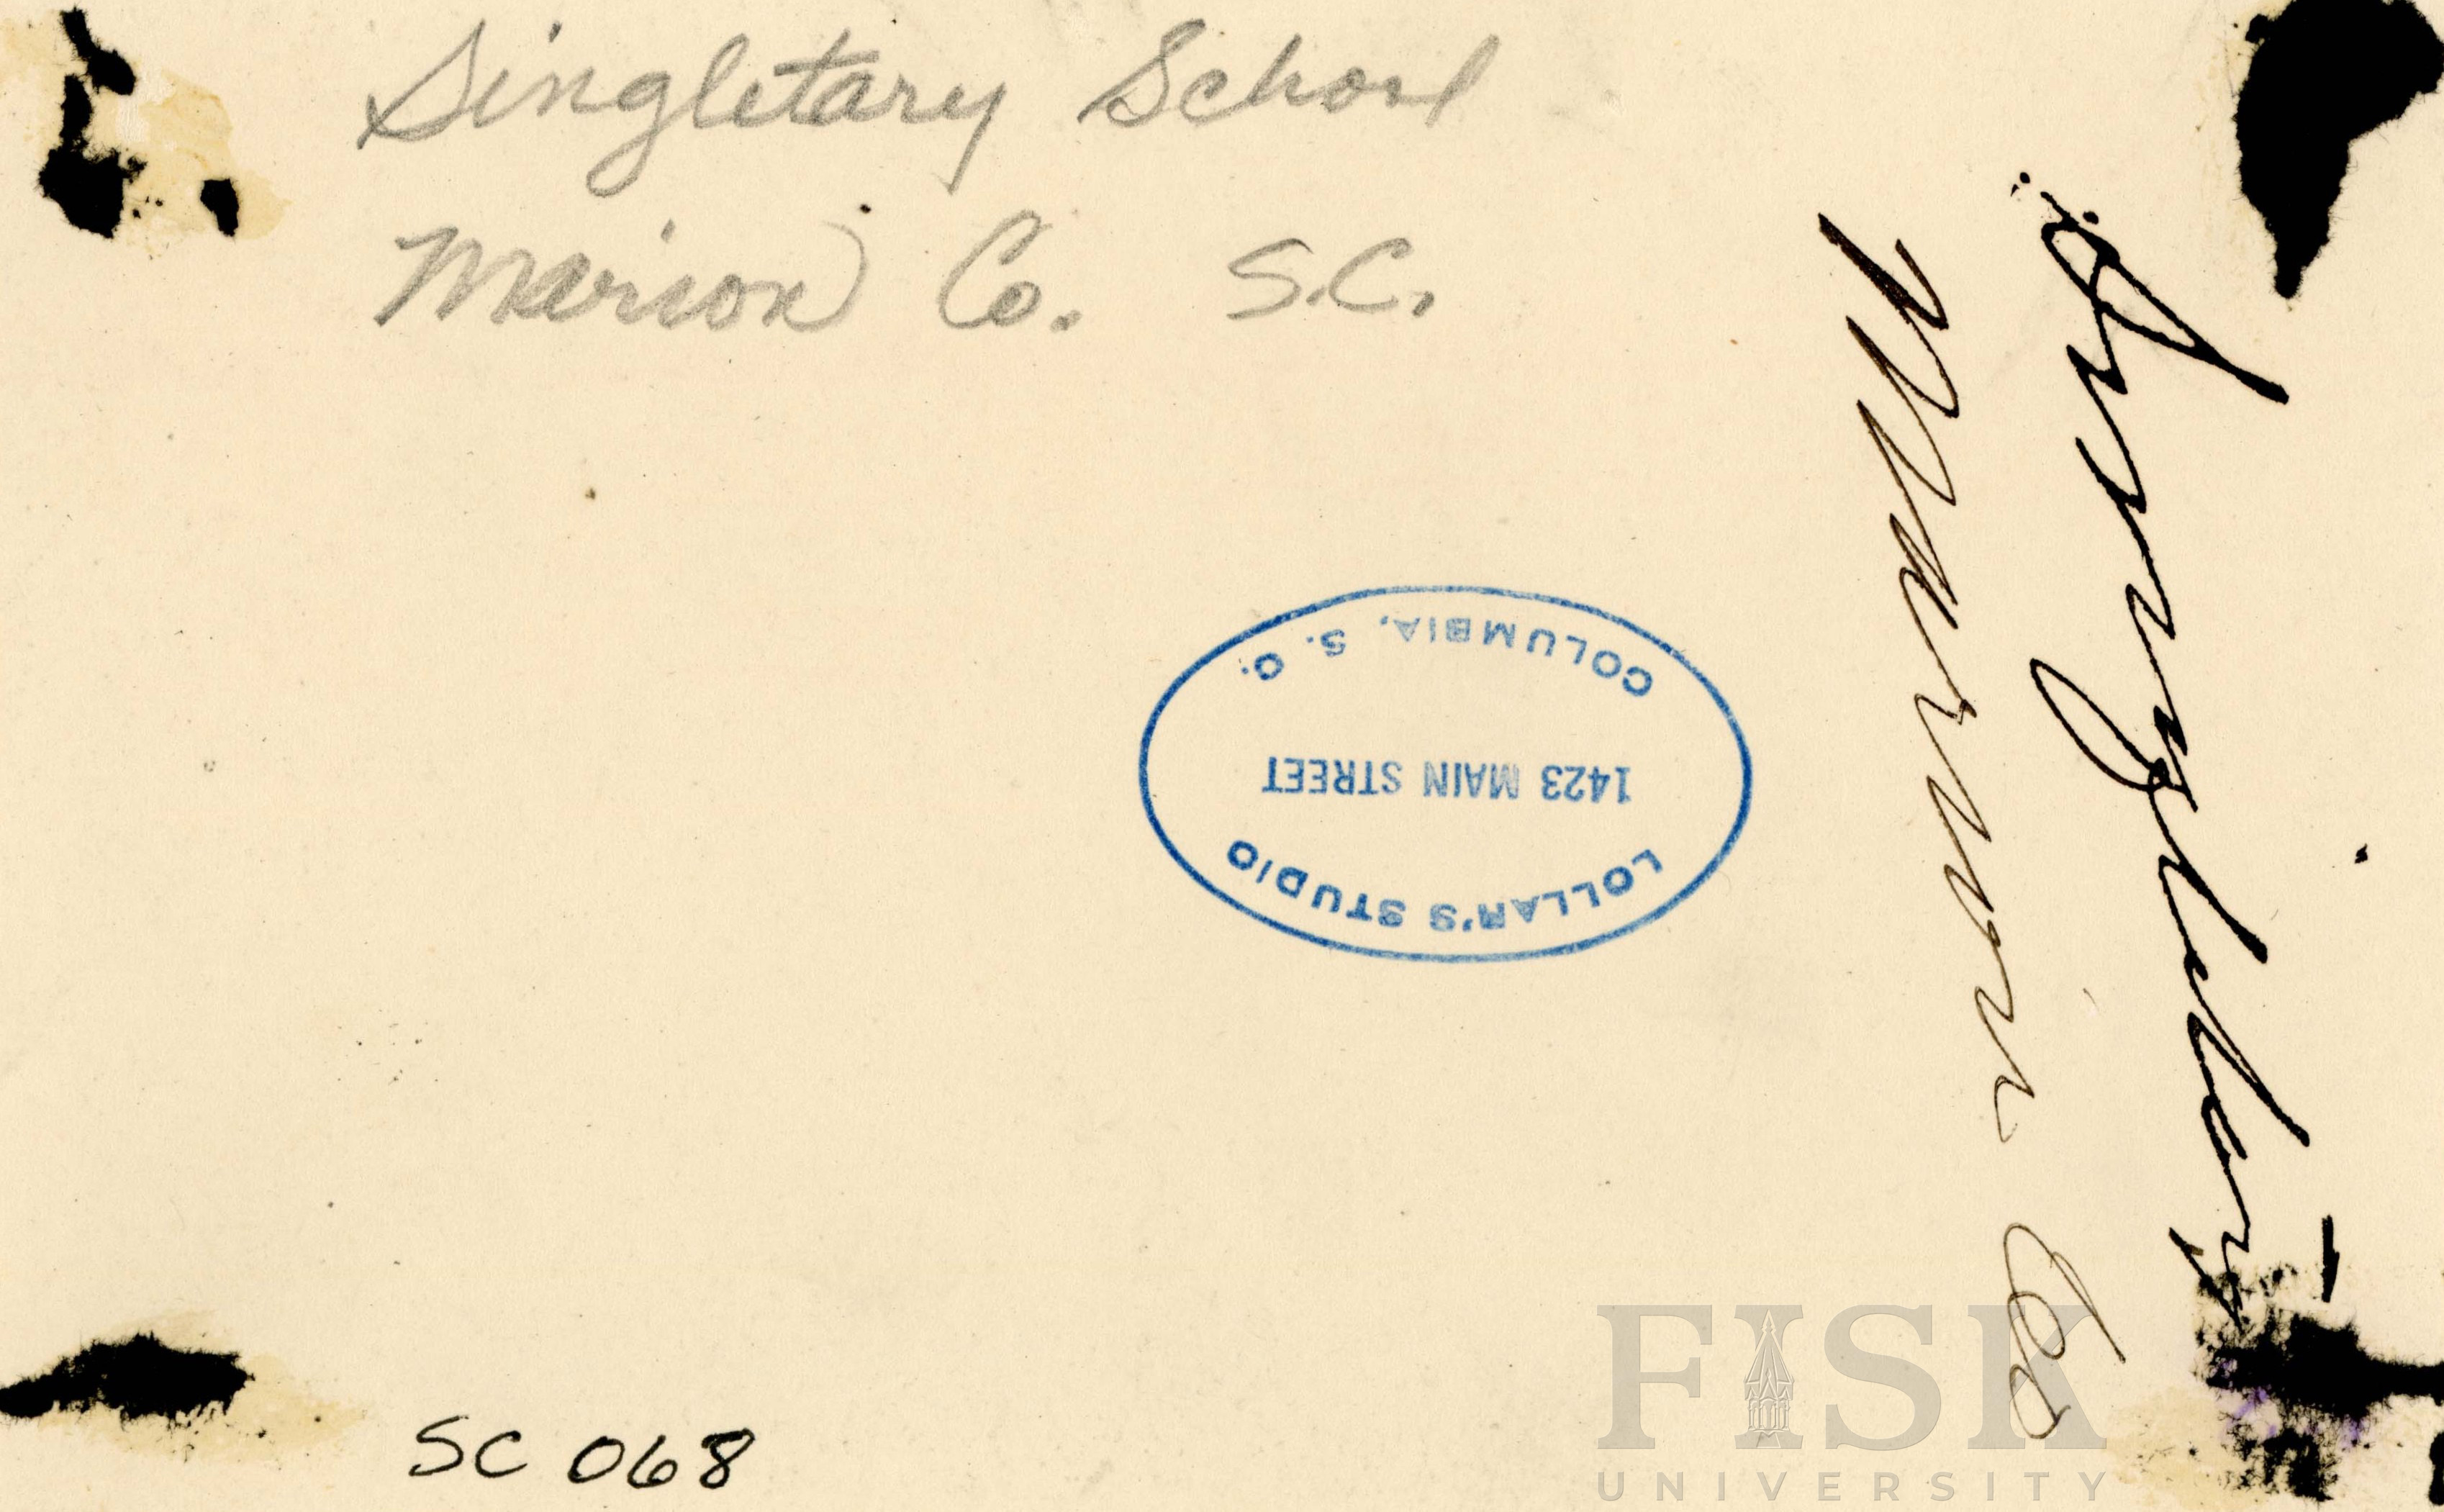 Singletary School
Marion Co. S.C.
Singletary
Marion Co
COLUMBIA, S. C.
1423 MAIN STREET
LOLLAR'S STUDIO
SC 068
FISK
UNIVERSITY